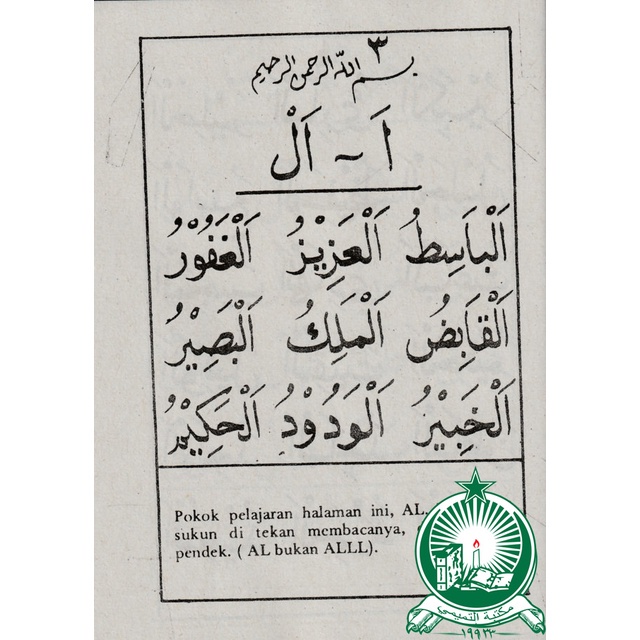 ٣
بسم الله الرحمن الرحيم
اَ ~ اَلْ
اَلْبَاسِطُ اَلْعَزِيْزُ اَلْغَفُوْرُ
اَلْقَابِضُ اَلْمَلِكُ اَلْبَصِيْرُ
اَلْخَبِيْرُ اَلْوَدُوْدُ اَلْحَكِيْمُ
Pokok pelajaran halaman ini, AL.
sukun di tekan membacanya,
pendek. ( AL bukan ALLL).
مكتبة التميمي
١٩٩٣